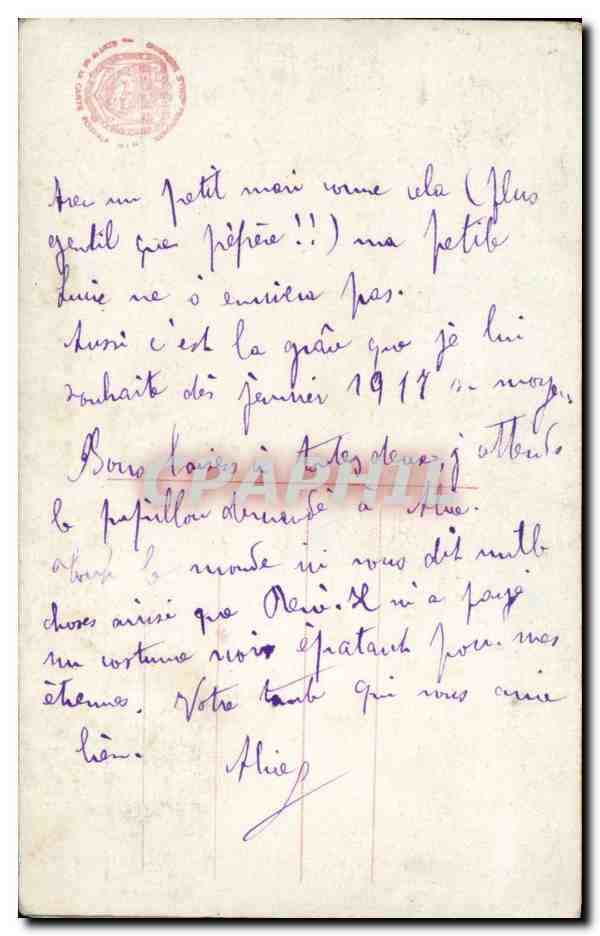 Avec un petit mari comme cela (plus
gentil que préfère!!) ma petite
Lucie ne s'ennuiera pas.
Aussi c'est la grâce que je lui
souhaite dès janvier 1917
Bons baisers à toutes deux, j'attends
le papillon demandé à
le monde ici vous dit mille
choses ainsi que René. Il m'a payé
un costume noir épatant pour mes
étrennes. Votre tante qui vous aime
bien. Alice
CPAPHIL